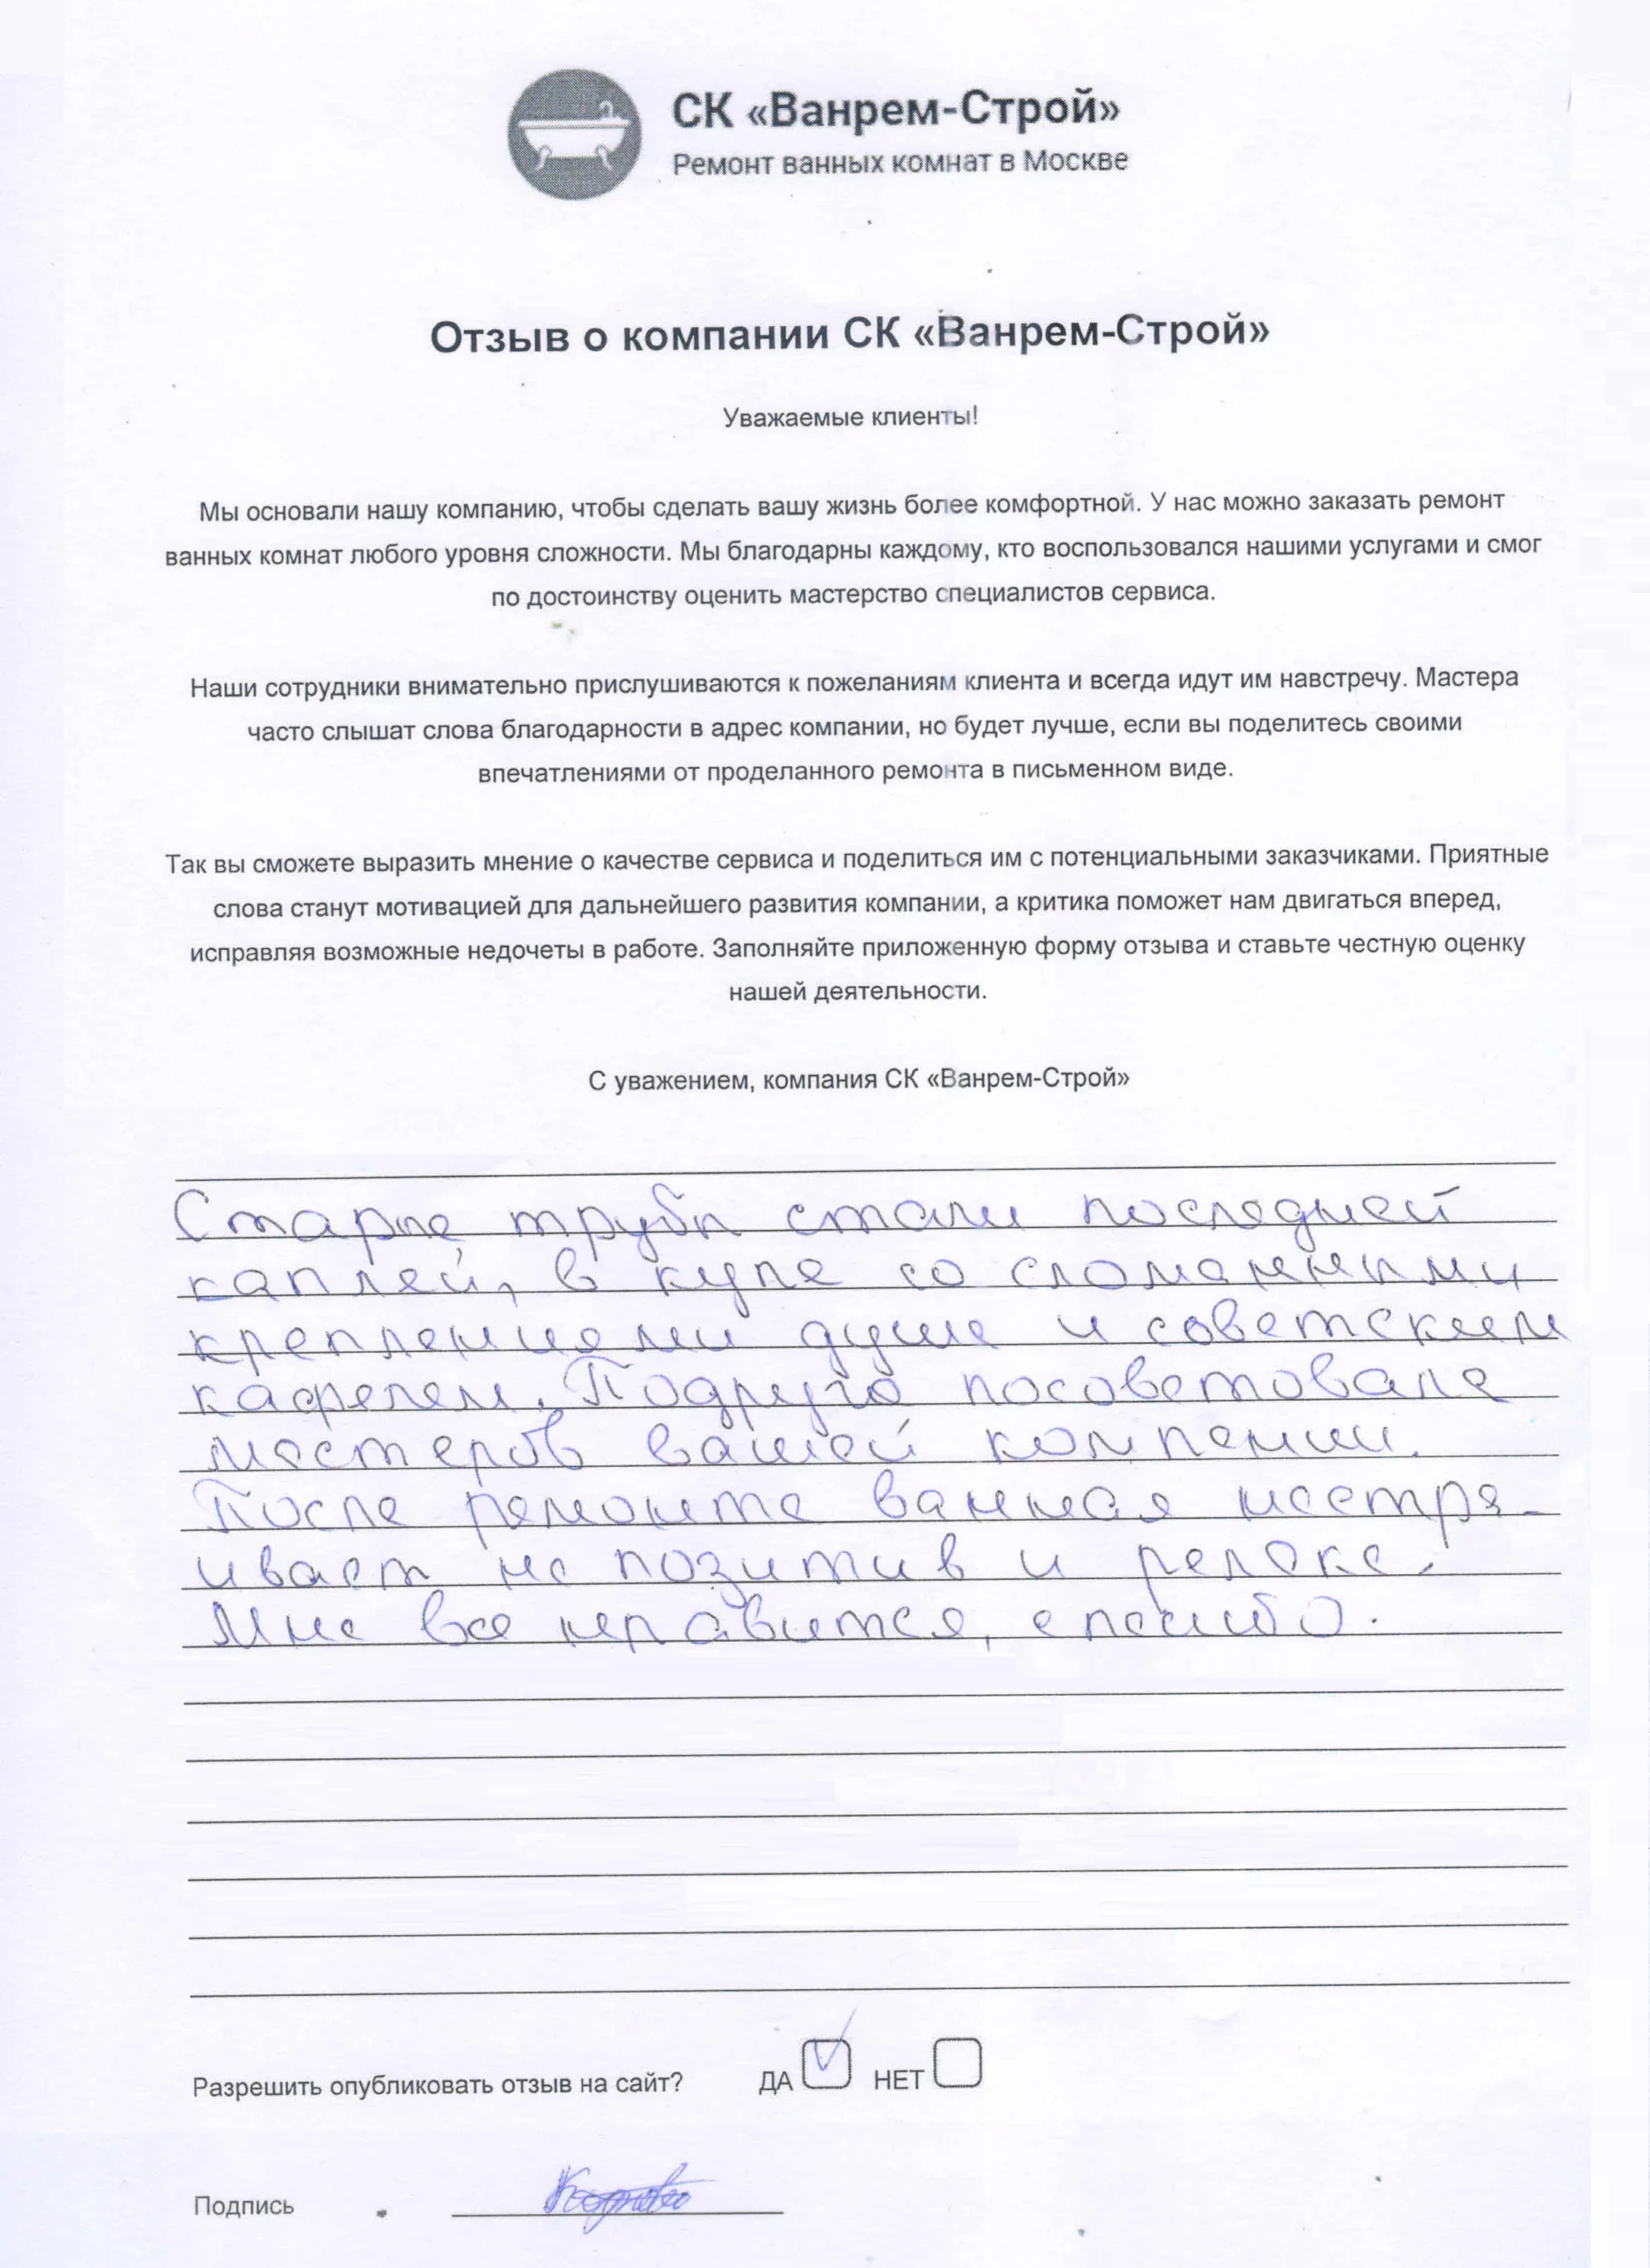 СК «Ванрем-Строй»
Ремонт ванных комнат в Москве
Отзыв о компании СК «Ванрем-Строй»
Уважаемые клиенты!
Мы основали нашу компанию, чтобы сделать вашу жизнь более комфортной. У нас можно заказать ремонт
ванных комнат любого уровня сложности. Мы благодарны каждому, кто воспользовался нашими услугами и смог
по достоинству оценить мастерство специалистов сервиса.
Наши сотрудники внимательно прислушиваются к пожеланиям клиента и всегда идут им навстречу. Мастера
часто слышат слова благодарности в адрес компании, но будет лучше, если вы поделитесь своими
впечатлениями от проделанного ремонта в письменном виде.
Так вы сможете выразить мнение о качестве сервиса и поделиться им с потенциальными заказчиками. Приятные
слова станут мотивацией для дальнейшего развития компании, а критика поможет нам двигаться вперед,
исправляя возможные недочеты в работе. Заполняйте приложенную форму отзыва и ставьте честную оценку
нашей деятельности.
С уважением, компания СК «Ванрем-Строй»
Старые трубы стали последней
каплей, в купе со сломанными
креплениями душа и советским
кафелем. Подруга посоветовала
мастеров вашей компании.
После ремонта ванная настра-
ивает на позитив и релакс.
Мне все нравится, спасибо.
Разрешить опубликовать отзыв на сайт? ДА НЕТ
Подпись